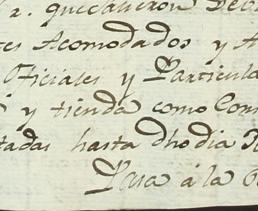 2. quedaueron Deb
tes Acomodados y A
Oficiales y Particula
y tienda como Con
tadas hasta dho dia
Pasa á la